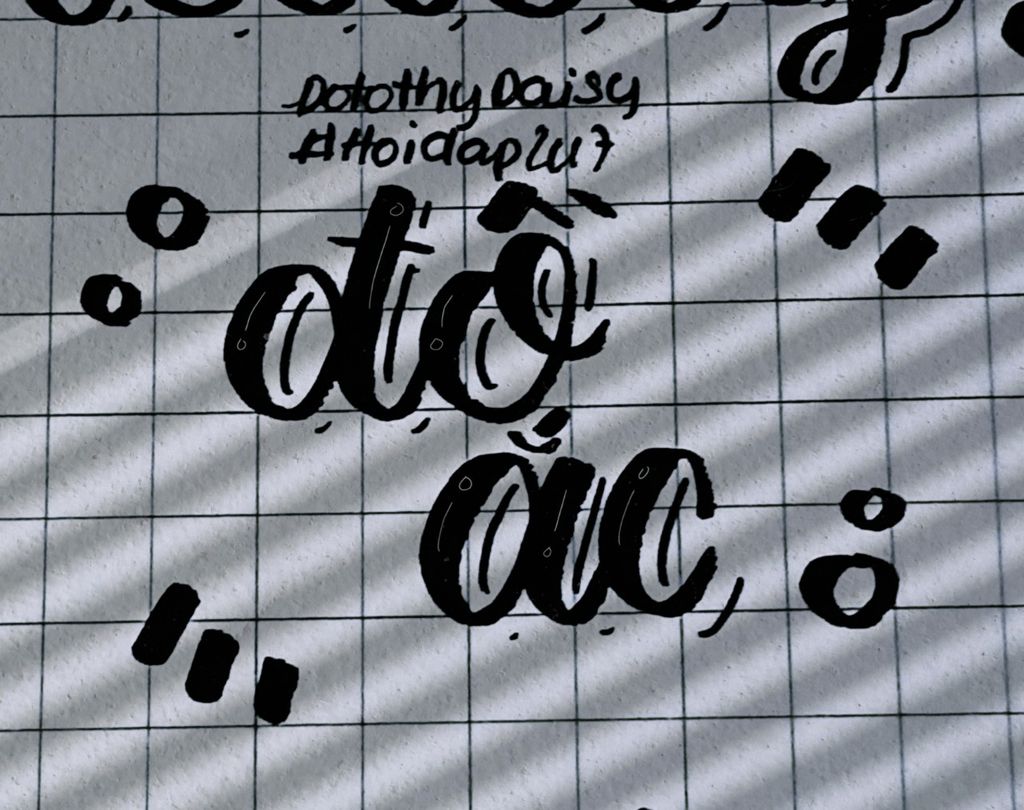 Dotothy Daisy
#Hoidap247
đồ
ắc